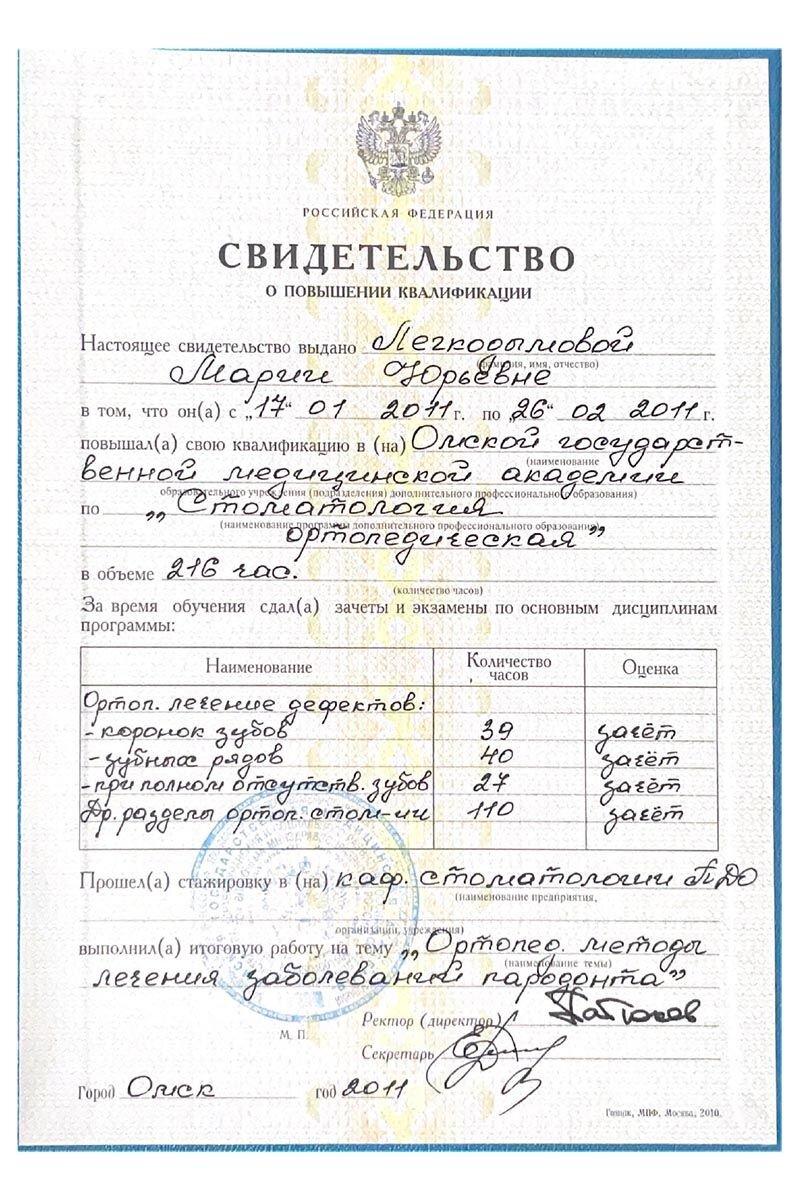 РОССИЙСКАЯ ФЕДЕРАЦИЯ
СВИДЕТЕЛЬСТВО
О ПОВЫШЕНИИ КВАЛИФИКАЦИИ
Настоящее свидетельство выдано Легкодымовой
(фамилия, имя, отчество)
Марии Юрьевне
в том, что он(а) с „17“ 01 2011 г. по „26“ 02 2011 г.
повышал(а) свою квалификацию в (на) Омской государст-
(наименование
венной медицинской академии
образовательного учреждения (подразделения) дополнительного профессионального образования)
по „Стоматология
(наименование программы дополнительного профессионального образования)
ортопедическая”
в объеме 216 час.
(количество часов)
За время обучения сдал(а) зачеты и экзамены по основным дисциплинам
программы:
Наименование Количество часов Оценка
Ортоп. лечение дефектов:
- коронок зубов 39 зачёт
- зубных рядов 40 зачёт
- при полном отсутств. зубов 27 зачёт
Др. разделы ортоп. стом-ии 110 зачёт
Прошел(а) стажировку в (на) каф. стоматологии ПДО
(наименование предприятия,
организации, учреждения)
выполнил(а) итоговую работу на тему „Ортопед. методы
(наименование темы)
лечения заболеваний пародонта”
Ректор (директор)
М. П.
Секретарь
Город Омск год 2011
Гознак, МПФ, Москва, 2010.